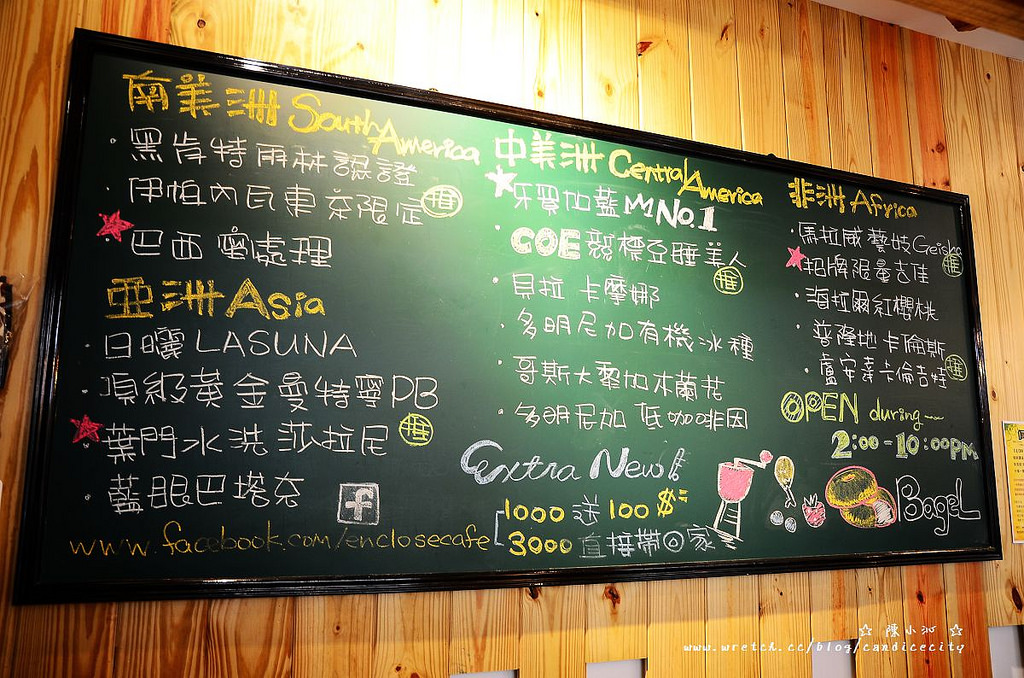 南美洲 South America
黑肯特雨林認證
伊帕內瓦東奈限定 推
巴西 蜜處理
亞洲 Asia
日曬 LASUNA
頂級黃金曼特寧PB
葉門水洗莎拉尼 推
藍眼巴塔克
f
www.facebook.com/enclosecafe
中美洲 Central America
牙買加藍MNo.1
COE競標豆睡美人 推
貝拉 卡摩娜
多明尼加有機冰種
哥斯大黎加木蘭花
多明尼加 低咖啡因
Extra New!
1000 送 100 $
3000 直接帶回家
非洲 Africa
馬拉威 藝妓Geisha
招牌限量吉佳 推
海拉爾紅櫻桃
普隆地卡倫斯
盧安達卡倫吉娃 推
OPEN during~
2:00-10:00PM
Bagel
☆ 陳小沁 ☆
www.wretch.cc/blog/candicecity